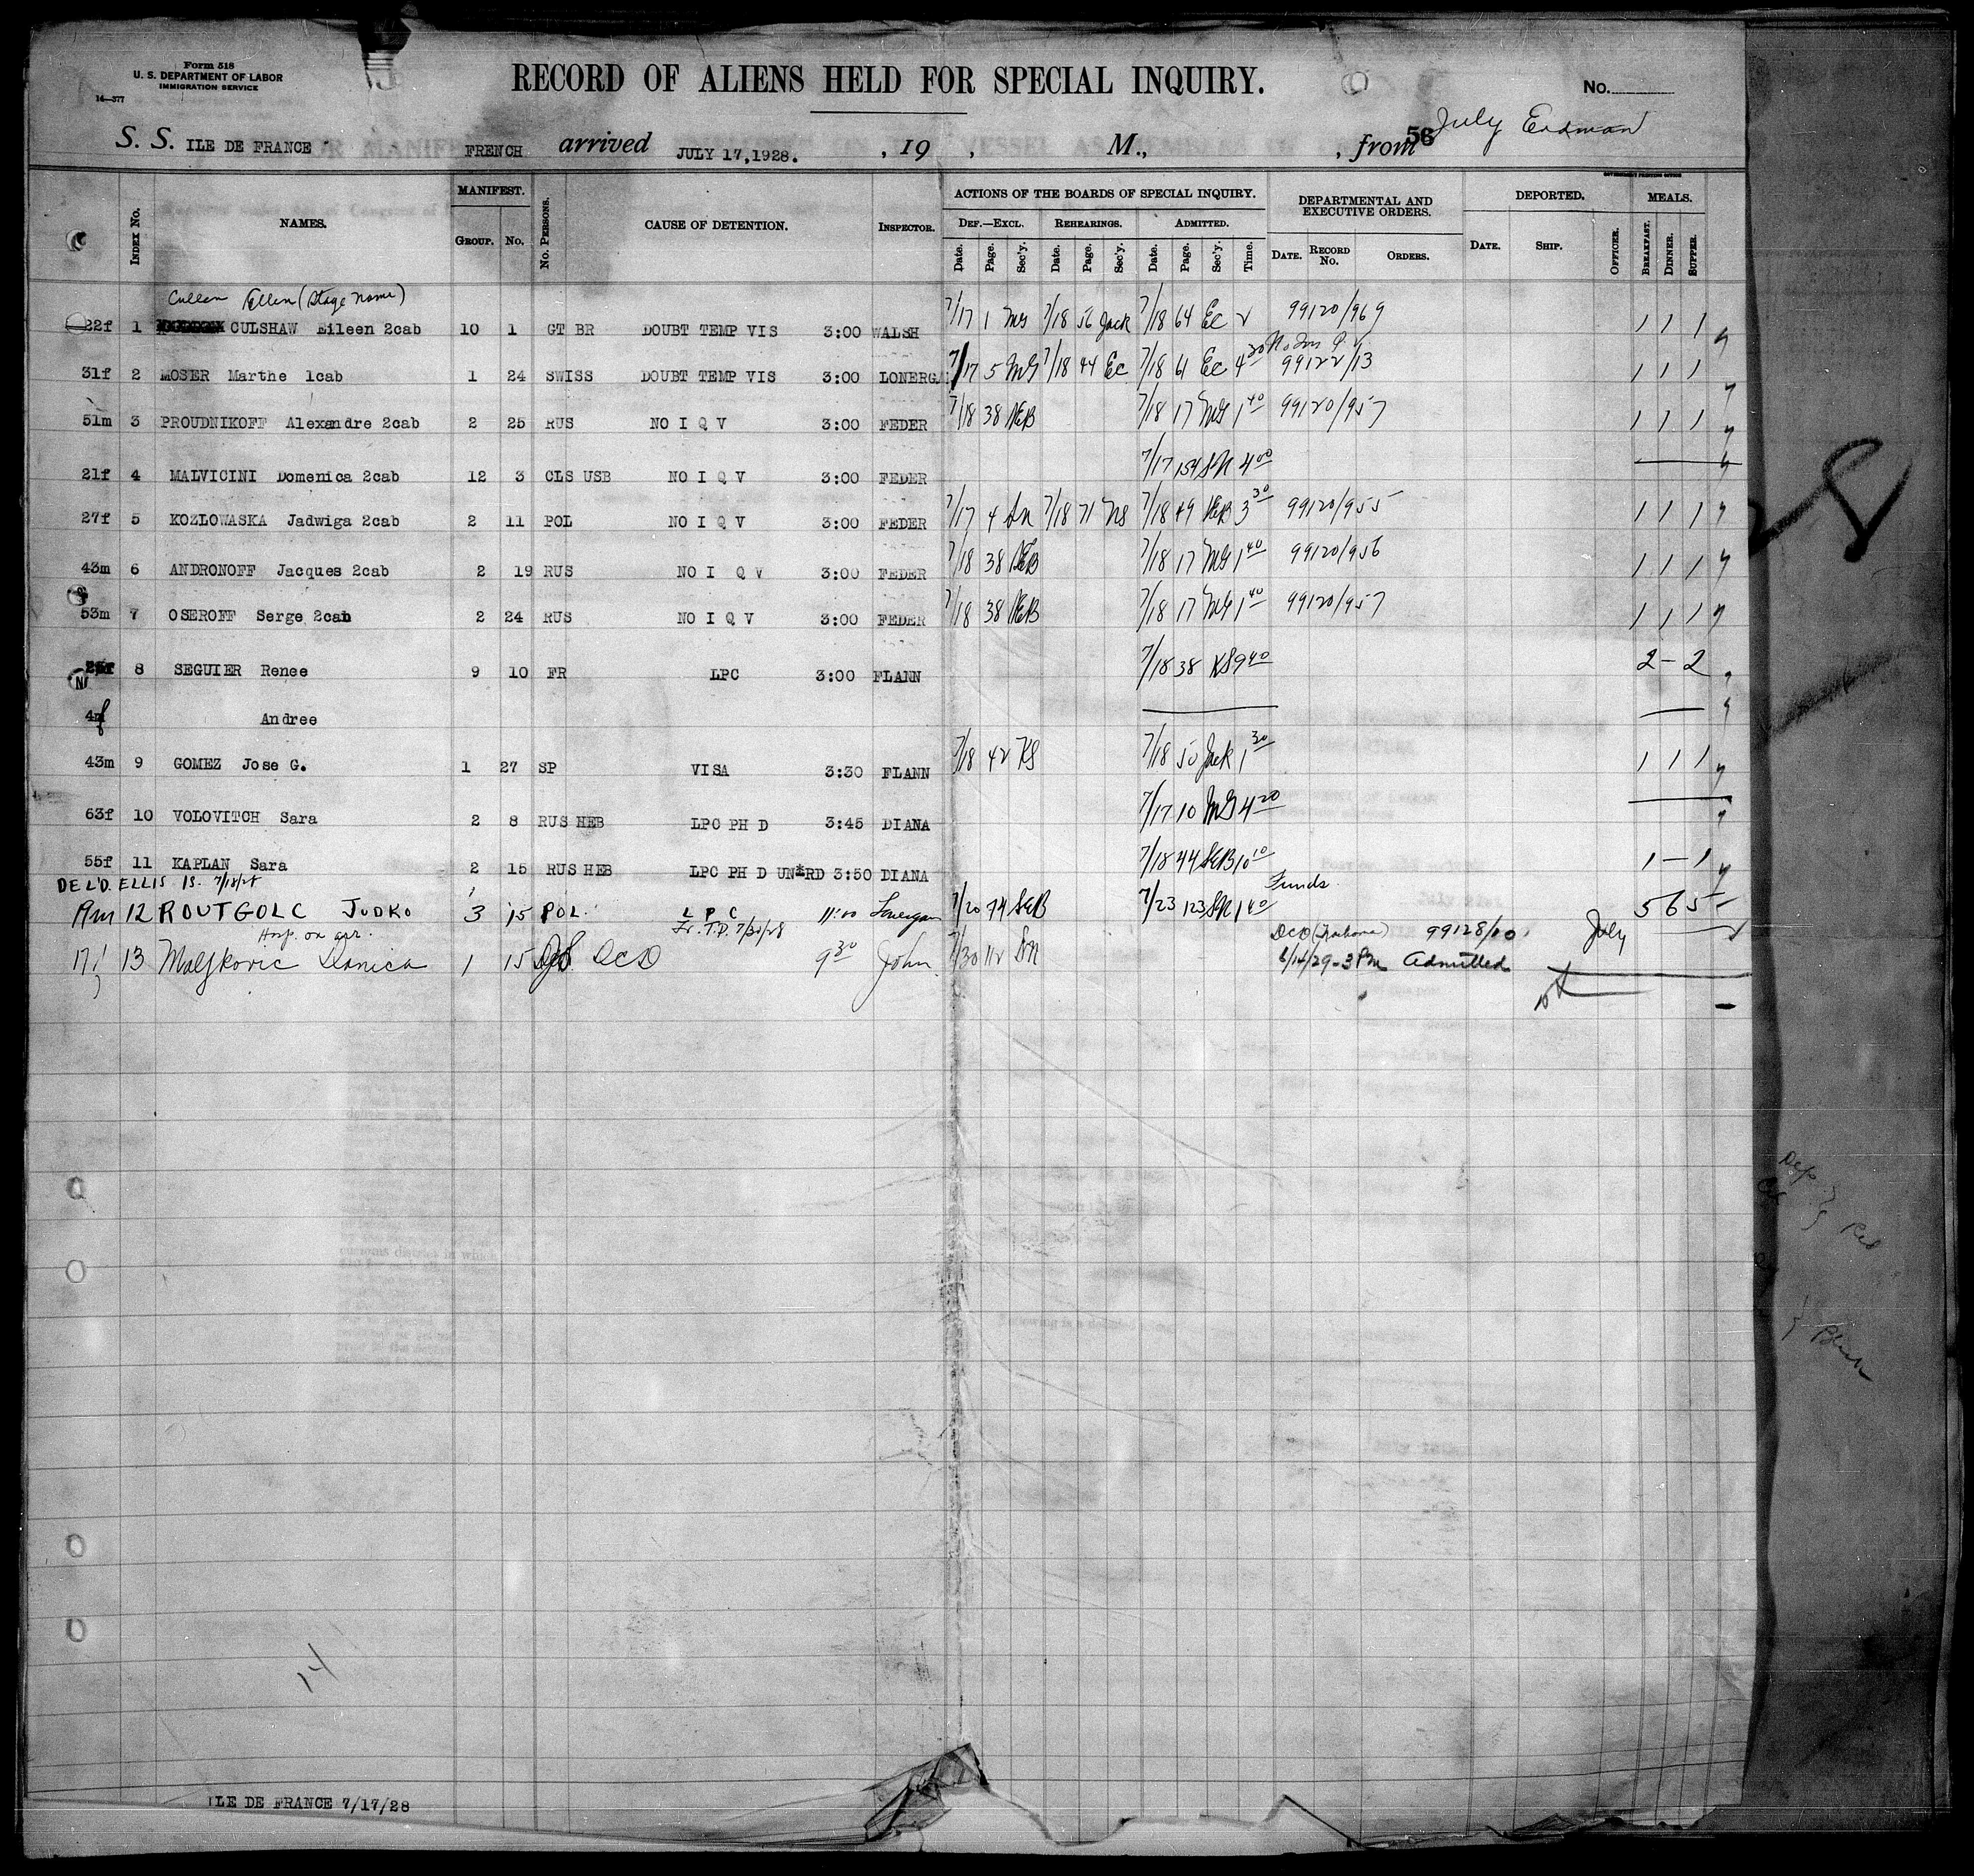 Form 518
U. S. DEPARTMENT OF LABOR
IMMIGRATION SERVICE
14—377
RECORD OF ALIENS HELD FOR SPECIAL INQUIRY.
No.
S. S. ILE DE FRANCE FRENCH arrived JULY 17,1928. , 19 , M., , from 56 July Erdman
GOVERNMENT PRINTING OFFICE
Index No. NAMES. MANIFEST. Group. No. No. Persons. CAUSE OF DETENTION. Inspector. ACTIONS OF THE BOARDS OF SPECIAL INQUIRY. Def.—Excl. Rehearings. Admitted. Date. Page. Sec'y. Date. Page. Sec'y. Date. Page. Sec'y. Time. DEPARTMENTAL AND EXECUTIVE ORDERS. Date. Record No. Orders. DEPORTED. Date. Ship. Officer. MEALS. Breakfast. Dinner. Supper.
Cullen Ellen (Stage Name)
22f 1 CULSHAW Eileen 2cab 10 1 GT BR DOUBT TEMP VIS 3:00 WALSH 7/17 1 MG 7/18 56 Jack 7/18 64 EC 2 99120/969 1 1 1
31f 2 MOSER Marthe 1cab 1 24 SWISS DOUBT TEMP VIS 3:00 LONERGA 7/17 5 MG 7/18 44 EC 7/18 61 EC 4 30 99122/13 1 1 1
51m 3 PROUDNIKOFF Alexandre 2cab 2 25 RUS NO I Q V 3:00 FEDER 7/18 38 7/18 17 MG 1 40 99120/957 1 1 1
21f 4 MALVICINI Domenica 2cab 12 3 CLS USB NO I Q V 3:00 FEDER 7/17 154 SN 4 00
27f 5 KOZLOWASKA Jadwiga 2cab 2 11 POL NO I Q V 3:00 FEDER 7/17 4 SN 7/18 71 7/18 49 3 30 99120/955 1 1 1
43m 6 ANDRONOFF Jacques 2cab 2 19 RUS NO I Q V 3:00 FEDER 7/18 38 7/18 17 MG 1 40 99120/956 1 1 1
53m 7 OSEROFF Serge 2cab 2 24 RUS NO I Q V 3:00 FEDER 7/18 38 7/18 17 MG 1 40 99120/957 1 1 1
8 SEGUIER Renee 9 10 FR LPC 3:00 FLANN 7/18 38 KS 9 40 2 — 2
N
4f Andree
43m 9 GOMEZ Jose G. 1 27 SP VISA 3:30 FLANN 7/18 42 KS 7/18 50 Jack 1 30 1 1 1
63f 10 VOLOVITCH Sara 2 8 RUS HEB LPC PH D 3:45 DIANA 7/17 10 MG 4 20
55f 11 KAPLAN Sara 2 15 RUS HEB LPC PH D UN*RD 3:50 DIANA 7/18 44 SEB 10 10 1 — 1
DEL'D. ELLIS IS. 7/18/28 Funds
19m 12 ROUTGOLC JUDKO 3 15 POL. L P C 11:00 Lonergan 7/20 74 SEB 7/23 123 SN 1 40 5 6 5
Hosp. on arr. Fr. T.D. 7/30/28
17f 13 Maljkovic Danica 1 15 DCD 9 30 John 7/30 112 SN DCD (Trahoma) 99128/100 July
6/14/29-3 Pm Admitted
28
Dep
Red
Black
14
ILE DE FRANCE 7/17/28